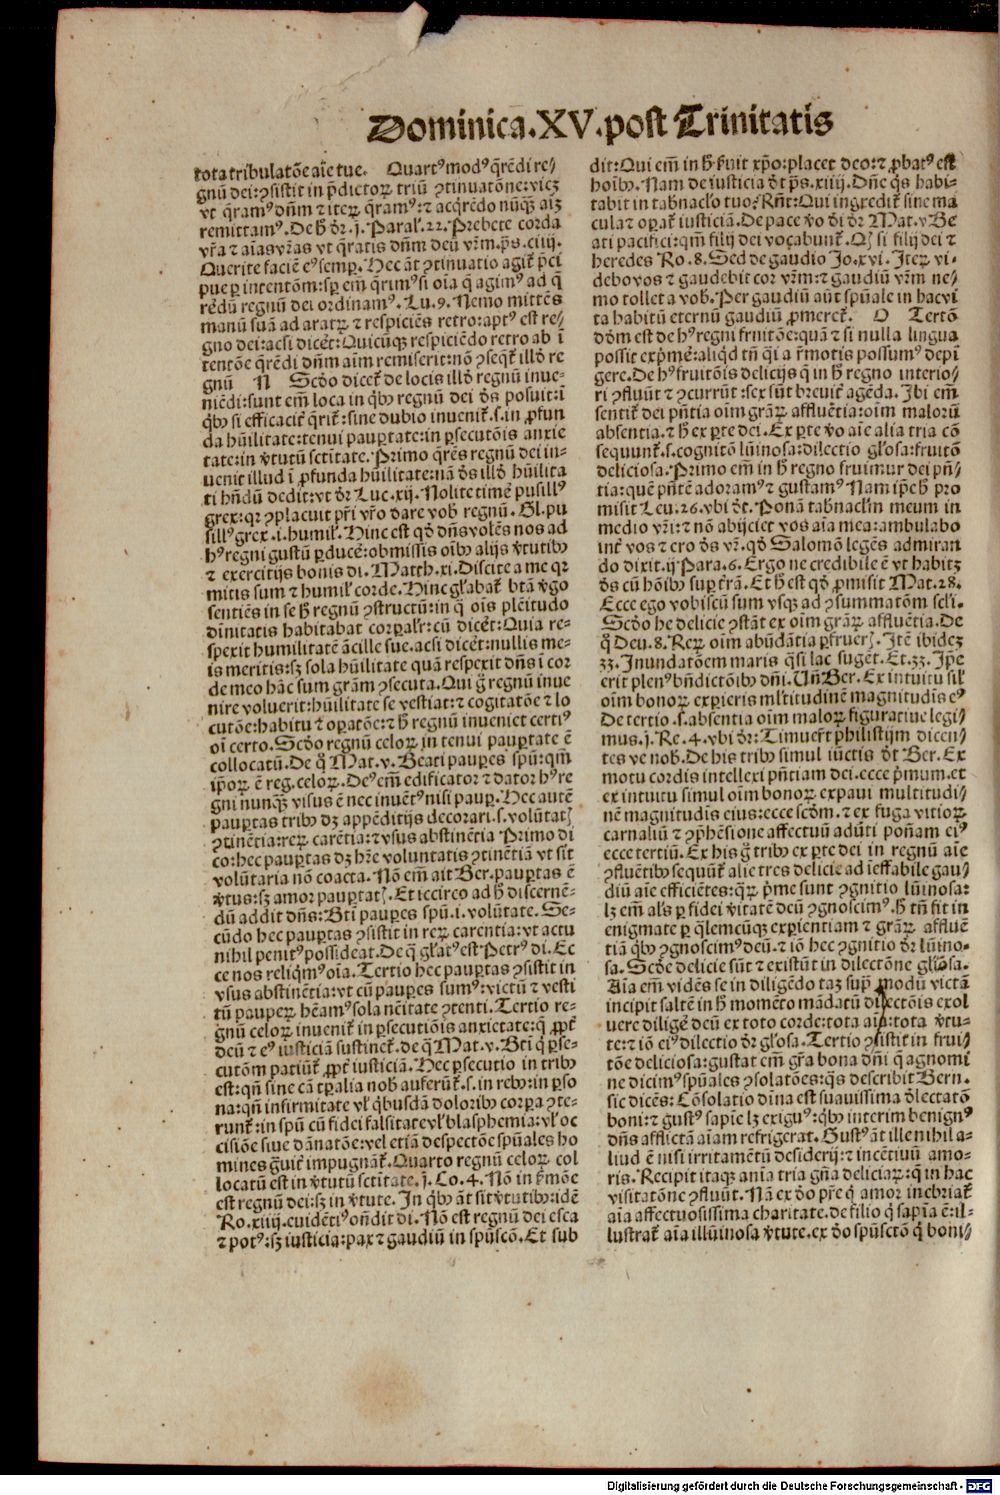 Dominica.XV.post Trinitatis
tota tribulatōe aīe tue. Quartꝰ modꝰ q̄rēdi re⸗
gnū dei:ꝯsistit in p̄dictoꝝ triū ꝯtinuatōne:vicꝫ
vt q̄ramꝰ dn̄m ⁊ iteꝝ q̄ramꝰ:⁊ acq̄rēdo nūqꝫ aīꝫ
remittamꝰ.De h̄ dr̄.j. Paral'.22. Prebete corda
vr̄a ⁊ aīas vr̄as vt q̄ratis dn̄m deū vr̄m.ps.ciiij.
Querite faciē eꝰ semꝑ. Hec āt ꝯtinuatio agit̄ p̄ci
pue ꝑ intentōm:sꝑ em̄ q̄rimꝰ si oīa q̄ agimꝰ ad q̄
rēdū regnū dei ordinamꝰ. Lu.9. Nemo mittēs
manū suā ad aratꝝ ⁊ respiciēs retro:aptꝰ est re⸗
gno dei:acsi dicēt:Quicūqꝫ respiciēdo retro ab ī
tentōe q̄rēdi dn̄m aīm remiserit:nō ꝯseqt̄ illd̄ re
gnū N Scd̄o dicet̄ de locis illd̄ regnū inue⸗
niēdi:sunt em̄ loca in qꝰ regnū dei ds̄ posuit:ī
qꝰ si efficacit̄ q̄rit̄:sine dubio inuenit̄.s.in ꝓfun
da hūilitate:tenui pauꝑtate:in ꝑsecutōis anxie
tate:in v̄tutū sctītate. Primo q̄rēs regnū dei in⸗
uenit illud ī ꝓfunda hūilitate:nā ds̄ illd̄ hūilita
ti hn̄dū dedit:vt dr̄ Luc.xij. Nolite timē pusillꝰ
grex:qꝛ ꝯplacuit pr̄i vr̄o dare vob̄ regnū. Gl.pu
sillꝰ grex.i.humil'. Hinc est qd̄ dn̄s volēs nos ad
hꝰ regni gustū ꝑducē:obmissis oībꝰ alijs v̄tutibꝰ
⁊ exercitijs bonis di. Matth.xi. Discite a me qꝛ
mitis sum ⁊ humil' corde. Hinc gl'abat̄ bt̄ā v̄go
sentiēs in se h̄ regnū ꝯstructū:in q̄ oīs plēitudo
dīnitatis habitabat corꝑalr̄:cū dicēt:Quia re⸗
spexit humilitatē ācille sue.acsi dicēt:nullis me⸗
is meritis:sꝫ sola hūilitate quā respexit dn̄s ī cor
de meo hāc sum gr̄am ꝯsecuta. Qui ḡ regnū inue
nire voluerit:hūilitate se vestiat:⁊ cogitatōe ⁊ lo
cutōe:habitu ⁊ oꝑatōe:⁊ h̄ regnū inueniet certiꝰ
oī certo. Scd̄o regnū celoꝝ in tenui pauꝑtate ē
collocatū. De q̄ Mat.v. Beati pauꝑes spū:qm̄
ip̄oꝝ ē reg.celoꝝ. Deꝰ em̄ edificator ⁊ dator hꝰ re
gni nunqꝫ visus ē nec inuētꝰ nisi pauꝑ. Hec autē
pauꝑtas tribꝰ dꝫ appēditijs decorari.s.volūtat̄
ꝯtinētia:reꝝ carētia:⁊ vsus abstinētia Primo di
co:hec pauꝑtas dꝫ hr̄e voluntatis ꝯtinētiā vt sit
volūtaria nō coacta. Nō em̄ ait Ber. pauꝑtas ē
v̄tus:sꝫ amor pauꝑtat̄. Et iccirco ad h̄ discernē⸗
dū addit dn̄s: Bt̄i pauꝑes spū.i.volūtate. Se⸗
cūdo hec pauꝑtas ꝯsistit in reꝝ carentia:vt actu
nihil penitꝰ possideat. De q̄ gl'atꝰ est Petrꝰ di. Ec
ce nos reliq̄mꝰ oīa. Tertio hec pauꝑtas ꝯsistit in
vsus abstinētia:vt cū pauꝑes sumꝰ:victū ⁊ vesti
tū pauꝑeꝝ hēamꝰ sola nēitate ꝯtenti. Tertio re⸗
gnū celoꝝ inuenit̄ in ꝑsecutiōis anxietate:q̄ ꝓpt̄
deū ⁊ eꝰ iusticiā sustinet̄. de q̄ Mat.v. Bt̄i q̄ ꝑse⸗
cutōm patiūt̄ ꝓpt̄ iusticiā. Hec ꝑsecutio in trib⸗
est:qn̄ sine cā tꝑalia nob̄ auferūt̄.s.in rebꝰ:in ꝑso
na:qn̄ infirmitate vl' q̄busdā doloribꝰ corꝑa ꝯte⸗
runt̄:in spū cū fidei falsitate vl' blasphemia:vl' oc
cisiōe siue dānatōe:vel etiā despectōe spūales ho
mines ḡuit̄ impugnāt̄. Quarto regnū celoꝝ col
locatū est in v̄tutū sctītate.j. Co.4. Nō in ẜmōe
est regnū dei:sꝫ in v̄tute. In qꝰ āt sit v̄tutibꝰ:idē
Ro.xiiij.euidētiꝰ on̄dit di. Nō est regnū dei esca
⁊ potꝰ:sꝫ iusticia:pax ⁊ gaudiū in spūscō. Et sub
dit:Qui em̄ in h̄ ẜuit xp̄o:placet deo:⁊ ꝓbatꝰ est
hoībꝰ. Nam de iusticia dt̄ ps̄.xiiij. Dn̄e q̄s habi⸗
tabit in tab̄naclo tuo? Rn̄t: Qui ingredit̄ sine ma
cula ⁊ oꝑat̄ iusticiā. De pace v̄o dī dr̄ Mat.v Be
ati pacifici:qm̄ filij dei vocabunt̄. Qꝫ si filij dei ⁊
heredes Ro.8. Sed de gaudio Jo.xvi. Iteꝝ vi⸗
debo vos ⁊ gaudebit cor vr̄m:⁊ gaudiū vr̄m ne⸗
mo tollet a vob̄. Per gaudiū aūt spūale in hac vi
ta habitū eternū gaudiū ꝓmeret̄. O Tertō
dd̄m est de hꝰ regni fruitōe:quā ⁊ si nulla lingua
possit exp̄mē:aliqd̄ tn̄ q̄i a r̄motis possumꝰ depī
gere. De hꝰ fruitōis delicijs q̄ in h̄ regno interio⸗
ri ꝯfluūt ⁊ ꝯcurrūt:sex sūt breuit̄ agēda. Ibi em̄
sentit̄ dei pn̄tia oīm gr̄aꝝ affluētia:oīm malorū
absentia.⁊ h̄ ex ꝑte dei. Ex ꝑte v̄o aīe alia tria cō
sequunt̄.s.cognitō lūinosa:dilectio gl'osa:fruitō
deliciosa. Primo em̄ in h̄ regno fruimur dei pn̄⸗
tia:quē pn̄tē adoramꝰ ⁊ gustamꝰ Nam ip̄e h̄ pro
misit Leu.26.vbi dt̄. Ponā tab̄naclm̄ meum in
medio vr̄i:⁊ nō abijciet vos aīa mea:ambulabo
int̄ vos ⁊ ero ds̄ vr̄.qd̄ Salomō legēs admiran
do dixit.ij Para.6. Ergo ne credibile ē vt habitꝫ
ds̄ cū hoībꝰ suꝑ t̄rā. Et h̄ est qd̄ ꝓmisit Mat.28.
Ecce ego vobiscū sum vsqꝫ ad ꝯsummatōm sel'i.
Scd̄o he delicie ꝯstāt ex oīm gr̄aꝝ affluētia. De
q̄ Deu.8. Reꝝ oīm abūdātia ꝑfruer̄. Itē ibidē
33. Inundatōem maris q̄si lac sugēt. Et.33. Ip̄e
erit plenꝰ bn̄dictōibꝰ dn̄i. Vn̄ Ber. Ex intuitu sil'
oīm bonoꝝ exꝑieris ml'titudinē magnitudīs eꝰ
De tertio.s.absentia oīm maloꝝ figuratiue legi⸗
mus.j. Re.4.vbi dr̄: Timuert̄ philistijm dicen⸗
tes ve nob̄. De his tribꝰ simul iūctis dt̄ Ber. Ex
motu cordis intellexi pn̄tiam dei.ecce p̄mum.et
ex intuitu simul oīm bonoꝝ expaui multitudi⸗
nē magnitudīs eius:ecce scd̄m.⁊ ex fuga vitioꝝ
carnaliū ⁊ ꝯp̄hēsione affectuū adūti poñam eiꝰ
ecce tertiū. Ex his ḡ tribꝰ ex ꝑte dei in regnū aīe
ꝯfluētibꝰ sequūt̄ alie tres delicie ad īeffabile gau⸗
diū aīe efficiētes:q̄ꝝ p̄me sunt ꝯgnitio lūinosa:
lꝫ em̄ al's ꝑ fidei v̄itatē deū ꝯgnoscimꝰ.h̄ tn̄ fit in
enigmate ꝑ q̄lemcūqꝫ exꝑientiam ⁊ gr̄aꝝ affluē
tiā qꝰ ꝯgnoscimꝰ deū.⁊ iō hec ꝯgnitio dr̄ lūino⸗
sa. Scd̄e delicie sūt ⁊ existūt in dilectōne gl'osa.
Aīa em̄ vidēs se in diligēdo taꝫ suꝑ modū victā
incipit saltē in h̄ momēto mādatū dilectōis exol
uere diligē deū ex toto corde:tota aīa:tota v̄tu⸗
te:⁊ iō eiꝰ dilectio dr̄ gl'osa. Tertio ꝯsistit in frui⸗
tōe deliciosa:gustat em̄ gr̄a bona dn̄i q̄ agnomi
ne dicimꝰ spūales ꝯsolatōes:q̄s describit Bern.
sic dicēs: Cōsolatio dīna est suauissima dlectatō
boni:⁊ gustꝰ sapīe lꝫ exiguꝰ:qꝰ interim benignꝰ
dn̄s afflictā aīam refrigerat. Gustꝰ āt ille nihil a⸗
liud ē nisi irritamētū desiderij:⁊ incētiuū amo⸗
ris. Recipit itaqꝫ anīa tria gn̄a deliciaꝝ:q̄ in hac
visitatōne ꝯfluūt. Nā ex d̄o pr̄e q̄ amor inebriat̄
aīa affectuosissima charitate.de filio q̄ sapīa ē:il⸗
lustrat̄ aīa illūinosa v̄tute.ex d̄o spūsctō q̄ boni⸗
Digitalisierung gefördert durch die Deutsche Forschungsgemeinschaft - DFG